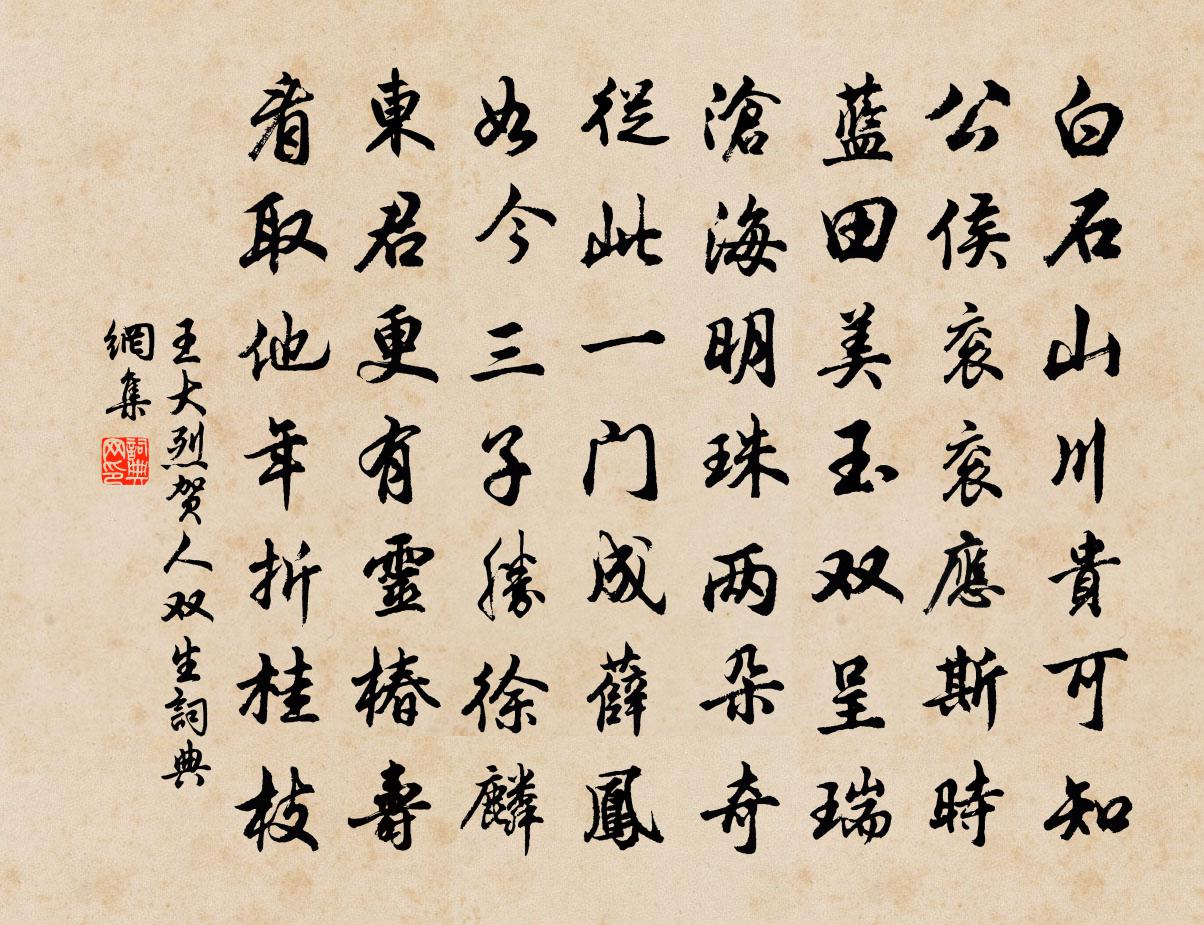 白石山川貴可知
公侯衮衮應斯時
藍田美玉双呈瑞
滄海明珠两朵奇
從此一门成薛鳳
如今三子勝徐麟
東君更有靈椿壽
看取他年折桂枝
王大烈贺人双生詞典
網集
詞典
网印